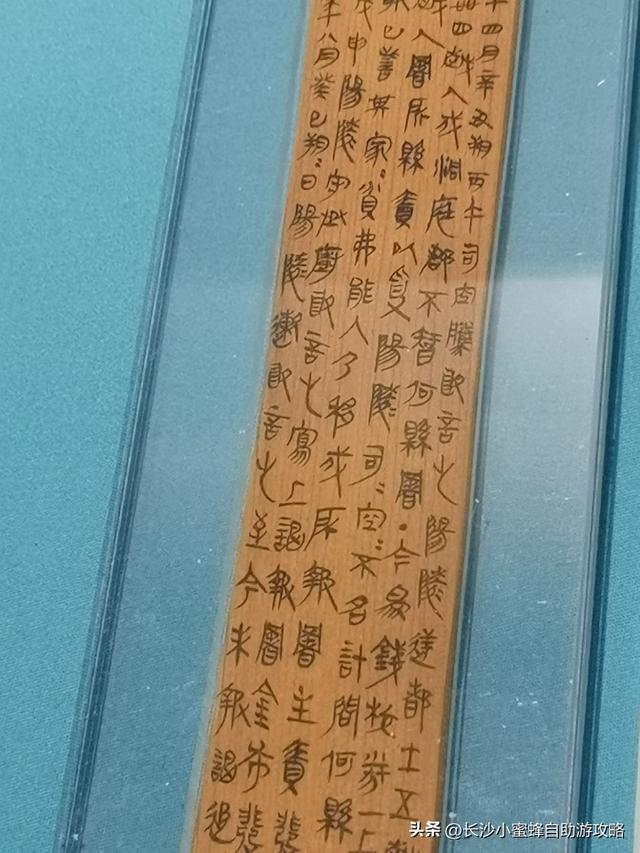 年四月辛丑朔丙午司空騰敢言之陽陵逆都士五
卌四越人戍洞庭郡不智何縣署·今為錢校券一上
越人署所縣責以受陽陵司=空=不名計問何縣
已訾其家=貧弗能入乃移戍所報署主責發
戊申陽陵守丞廚敢言之寫上謁報署金布發
年八月癸巳朔=日陽陵遫敢言之至今未報謁追
头条 @长沙小蜜蜂自助游攻略